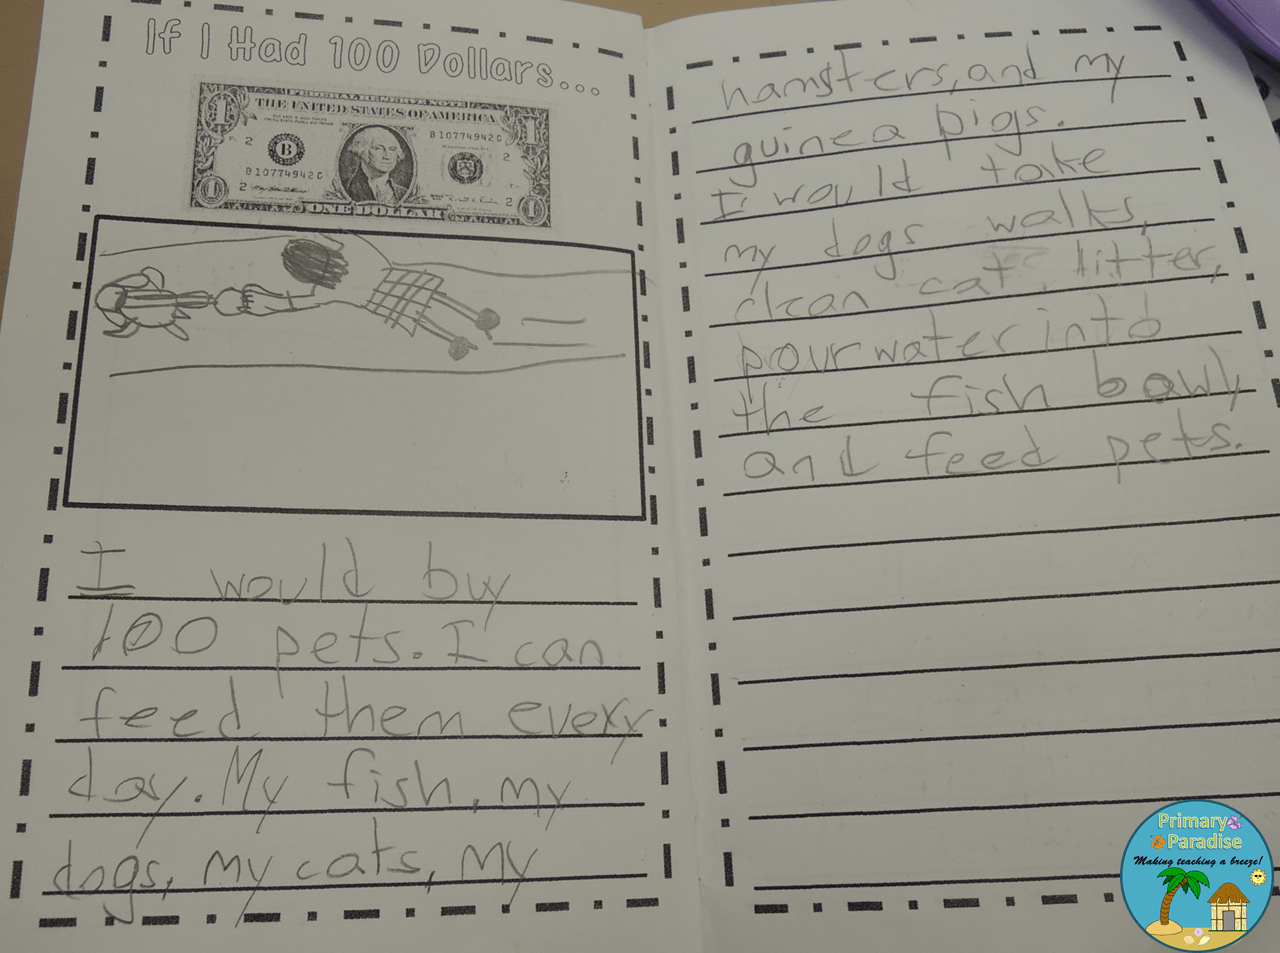 If I Had 100 Dollars...
FEDERAL RESERVE NOTE
THE UNITED STATES OF AMERICA
B 10774942 G
2
2
B
B 10774942 G
2
2
1
1
1
1
ONE DOLLAR
I would buy
100 pets. I can
feed them every
day. My fish, my
dogs, my cats, my
hamsters, and my
guinea pigs.
I would take
my dogs walks,
clean cat litter,
pour water into
the fish bowl,
and feed pets.
Primary
Paradise
Making teaching a breeze!